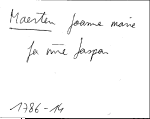 Maerten Joanne marie
fa vve Jaspar
1786-14